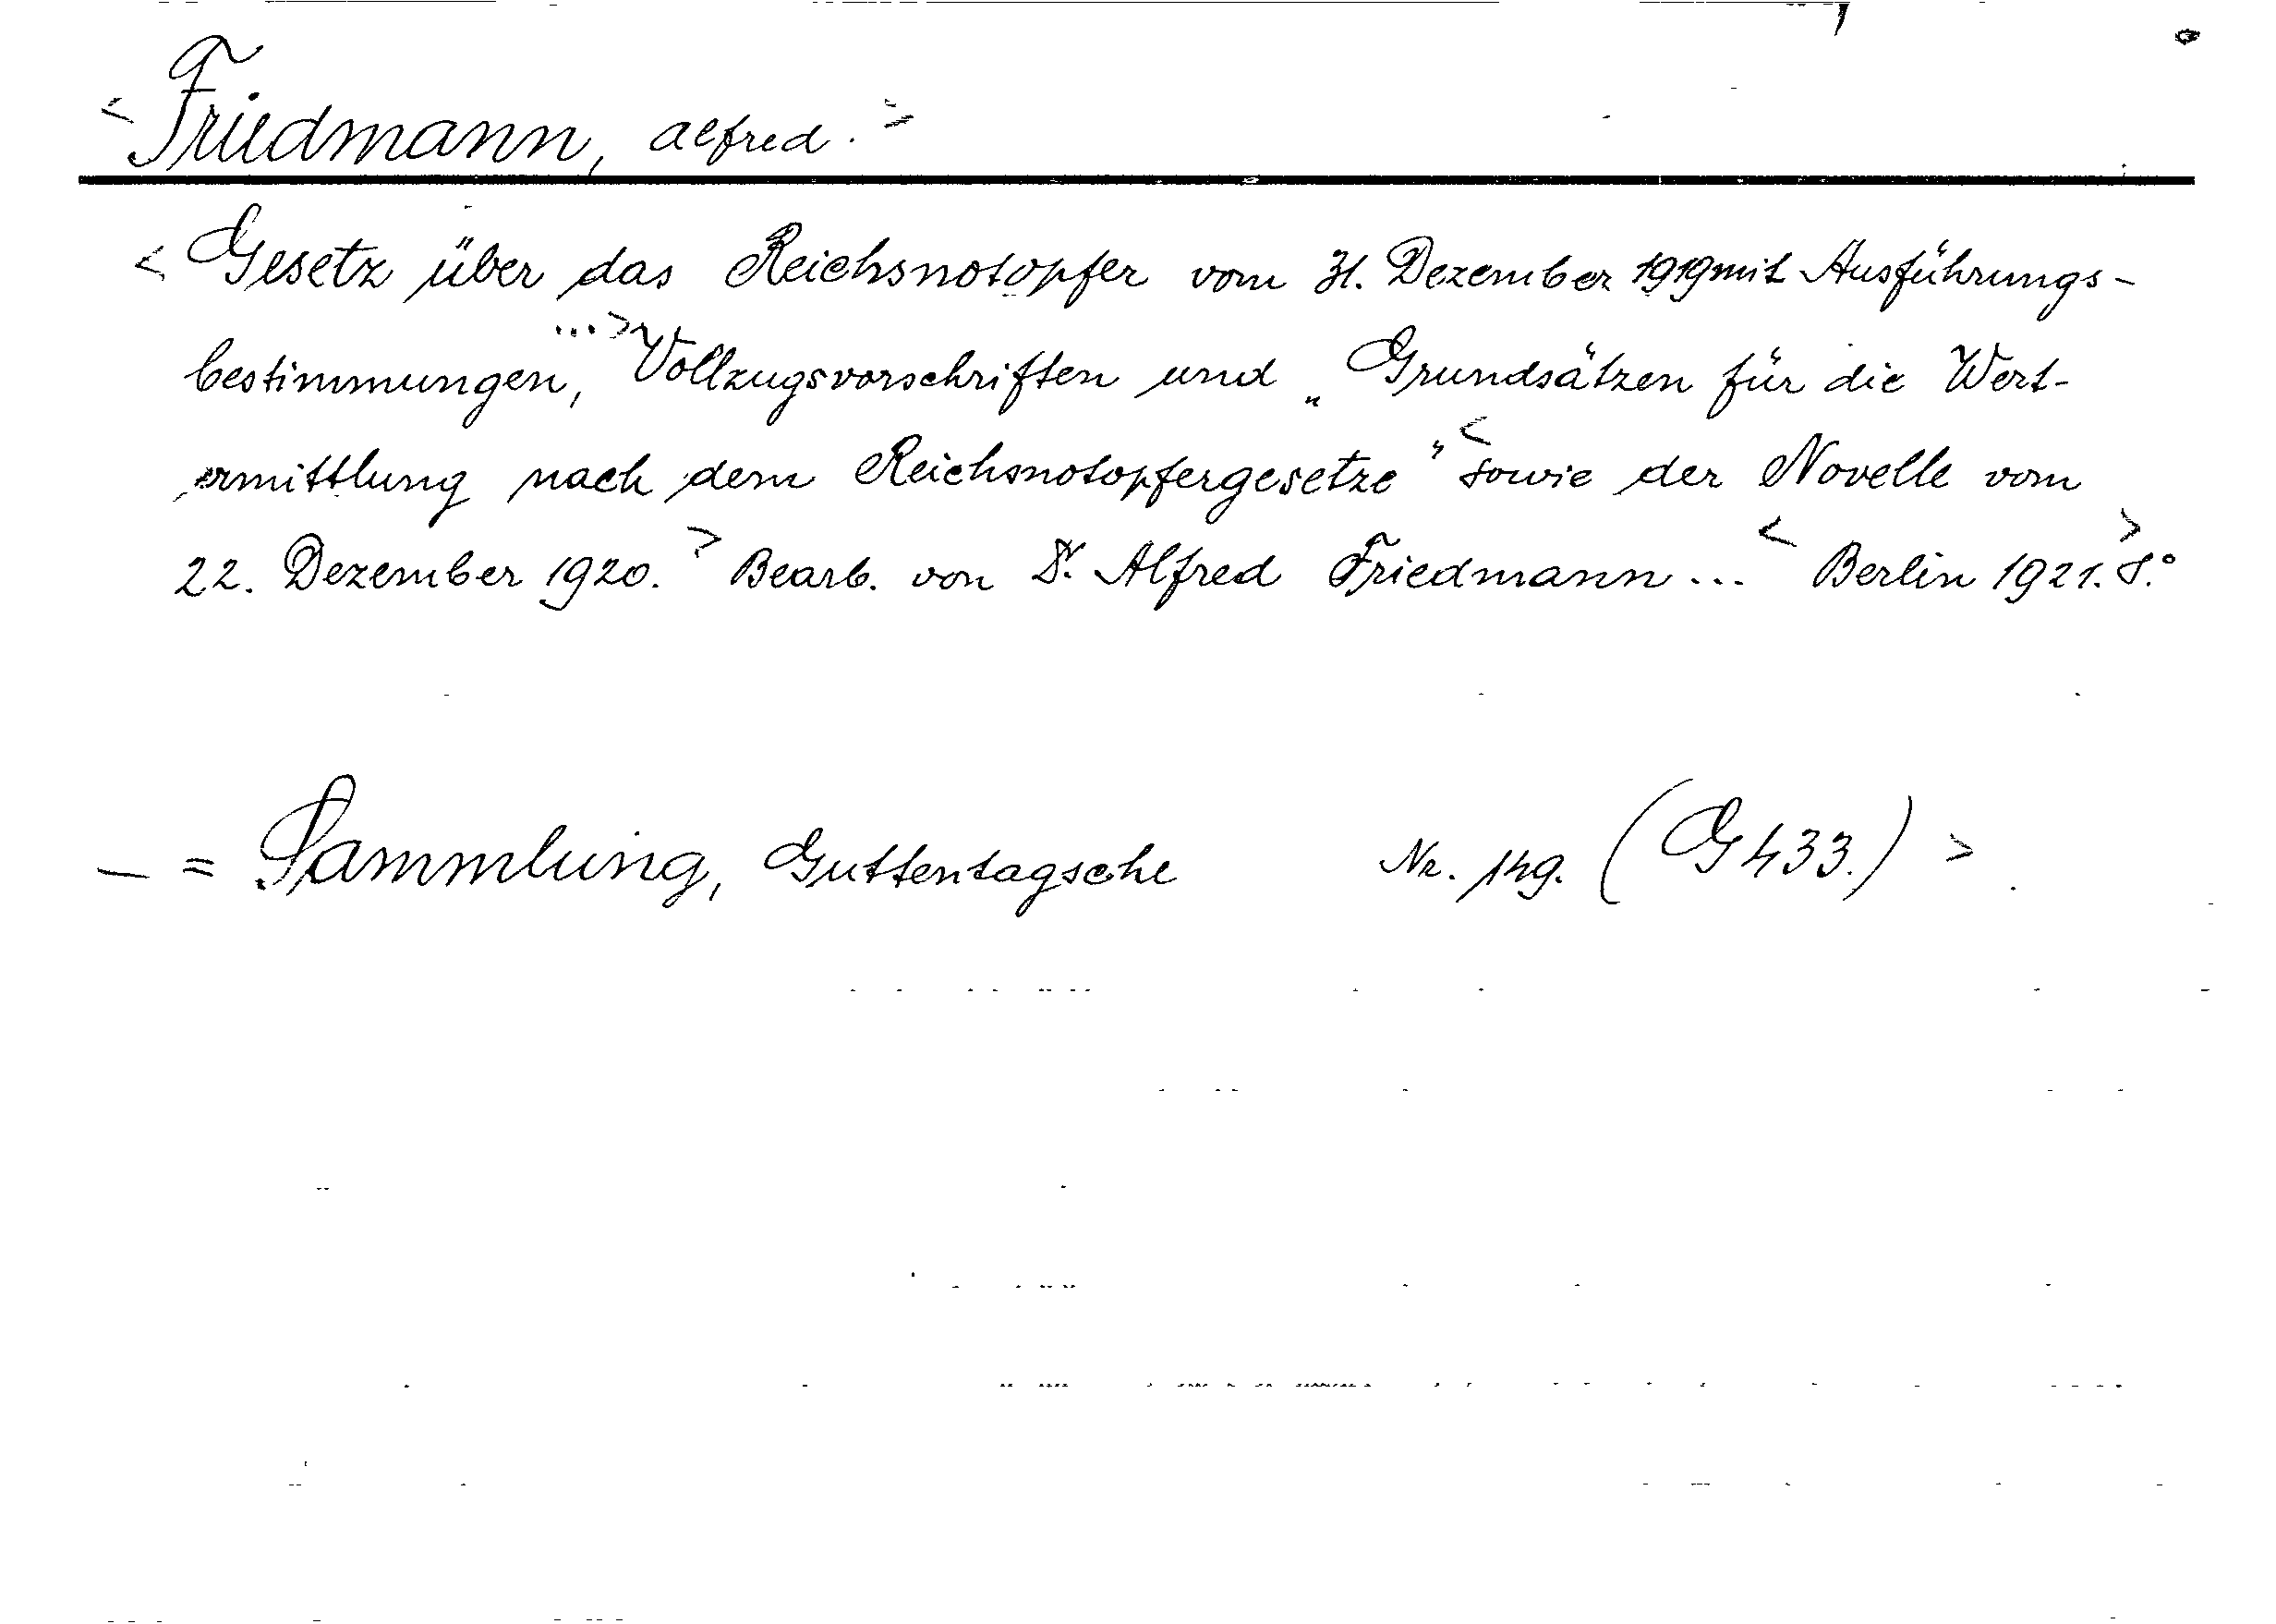 < Friedmann, Alfred. >
< Gesetz über das Reichsnotopfer vom 31. Dezember 1919 mit Ausführungs-
bestimmungen, ... > Vollzugsvorschriften und „Grundsätzen für die Wert-
ermittlung nach dem Reichsnotopfergesetze" < sowie der Novelle vom
22. Dezember 1920. > Bearb. von Dr. Alfred Friedmann ... < Berlin 1921. 8.° >
— = Sammlung, Guttentagsche Nr. 149. (G 433.) >